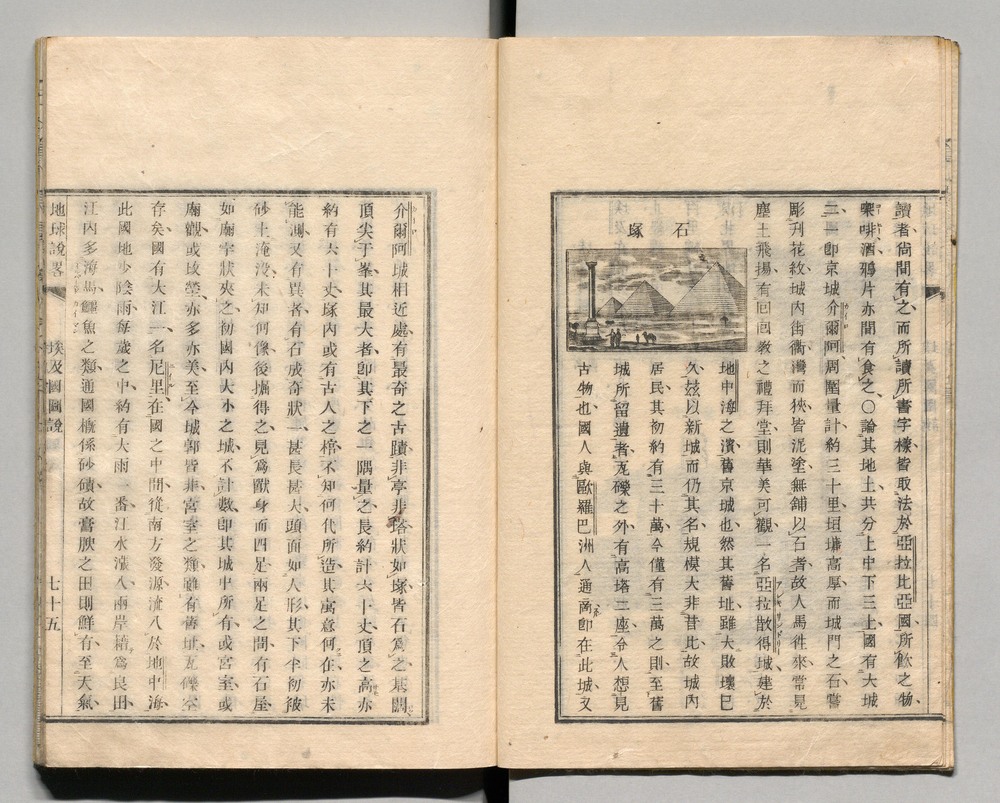 讀者尙間有之而所讀所書字樣皆取法於亞拉比亞國所飮之物
㗎啡酒鴉片亦間有食之〇論其地土共分上中下三土國有大城
二一卽京城介爾阿周圍量計約三十里垣墉高厚而城門之石嘗
彫刋花紋城內街衢灣而狹皆泥塗無鋪以石者故人馬徃來常見
塵土飛揚有囘囘敎之禮拜堂則華美可觀一名亞拉散得城建於
石塚
地中海之濱舊京城也然其舊址雖大敗壞已
久玆以新城而仍其名規模大非昔比故城內
居民其初約有三十萬今僅有三萬之則至舊
城所留遺者瓦礫之外有高塔二座令人想見
古物也國人與歐羅巴洲人通商卽在此城又
介爾阿城相近處有最奇之古蹟非亭非塔狀如塚皆石爲之基闊
頂尖于峯其最大者卽其下之一隅量之長約計六十丈頂之高亦
約有六十丈塚內或有古人之棺不知何代所造其寓意何在亦未
能測又有異者有石成奇狀一甚長甚大頭面如人形其下半初被
砂土淹沒未知何像後掘得之見爲獸身而四足兩足之間有石屋
如廟宇狀夾之初國內大小之城不計數卽其城中所有或宮室或
廟觀或坟塋亦多亦美至今城郭皆非宮室之類雖有舊址瓦礫
存矣國有大江一名尼里在國之中間從南方發源流入於地中海
此國地少陰雨每歲之中約有大雨一番江水漲入兩岸積爲良田
江內多海馬鱷魚之類通國槪係砂磧故膏腴之田則鮮有至天氣
地球說畧 埃及國圖說 七十五